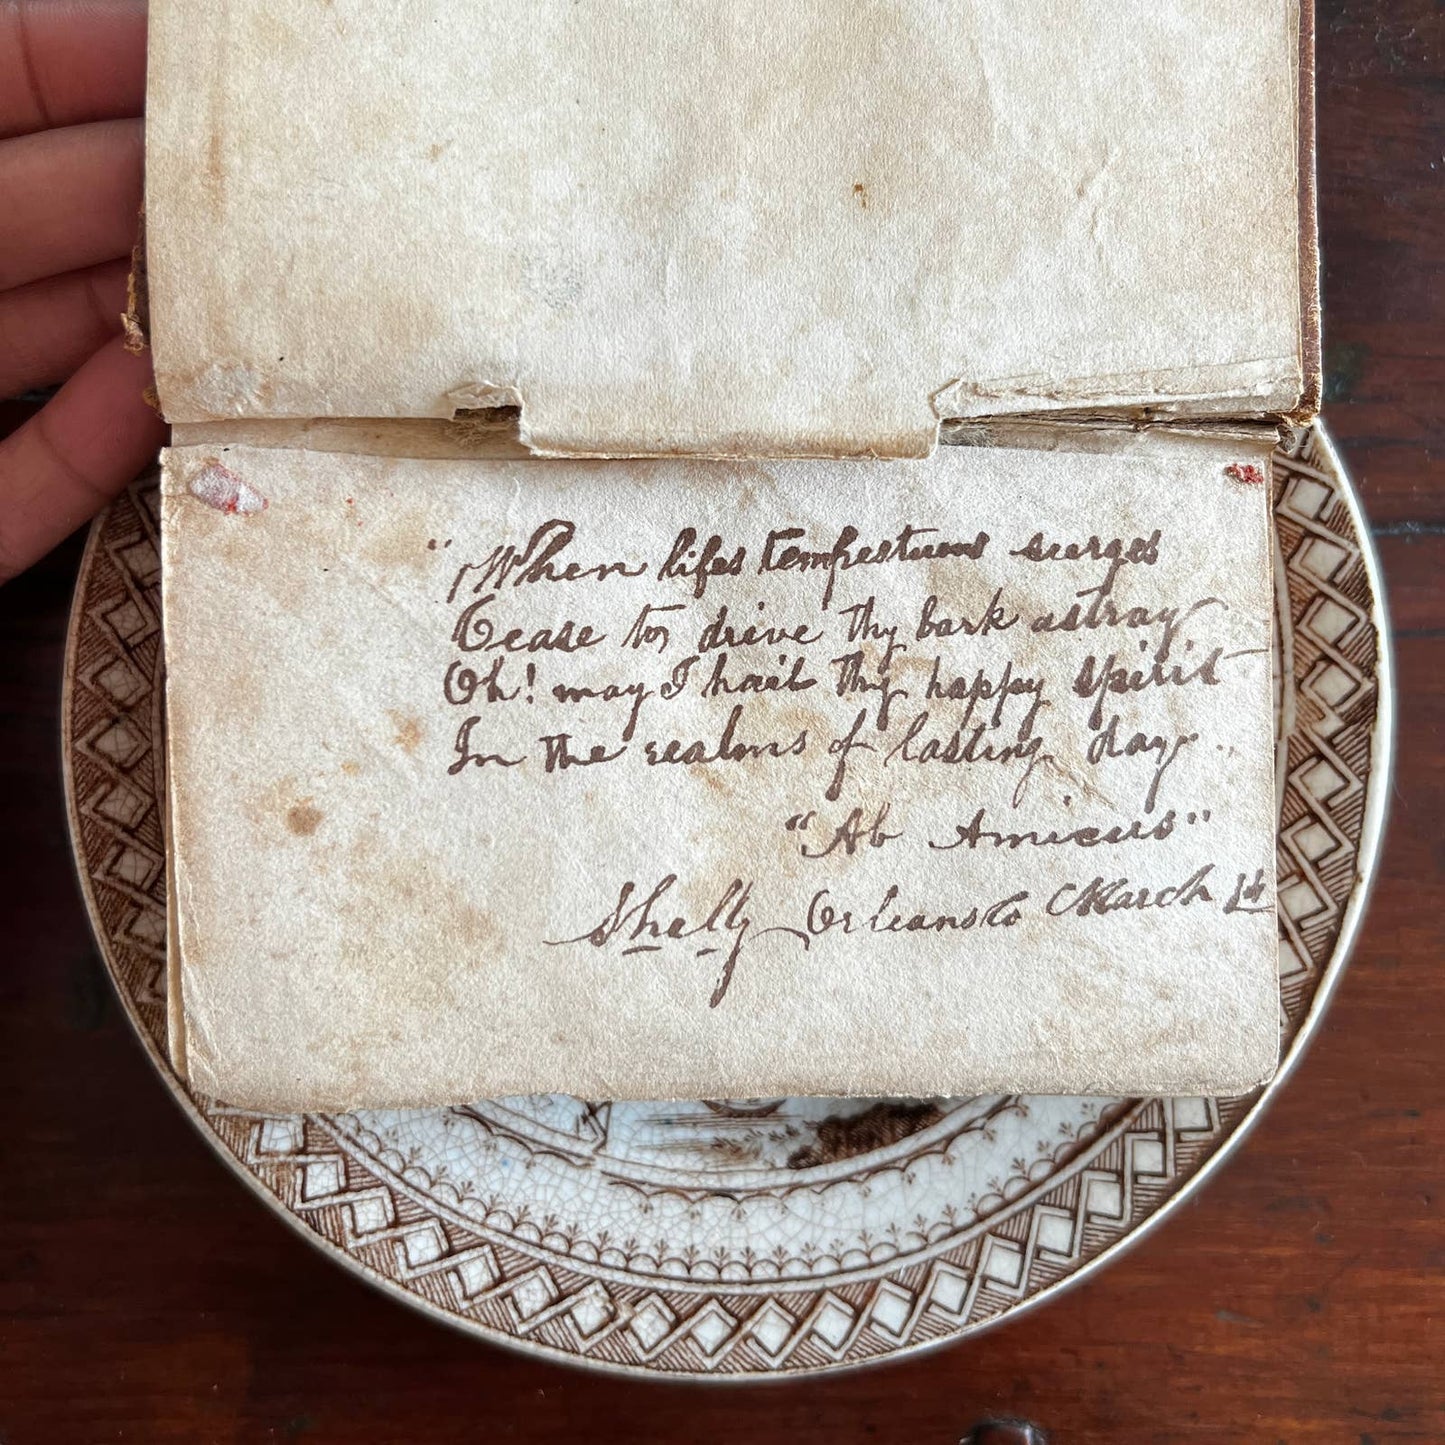 "When lifes tempestuous surges
Cease to drive thy bark astray
Oh! may I hail thy happy spirit
In the realms of lasting day."
"Ab Amicus"
Shelby Orleans Co March 1st